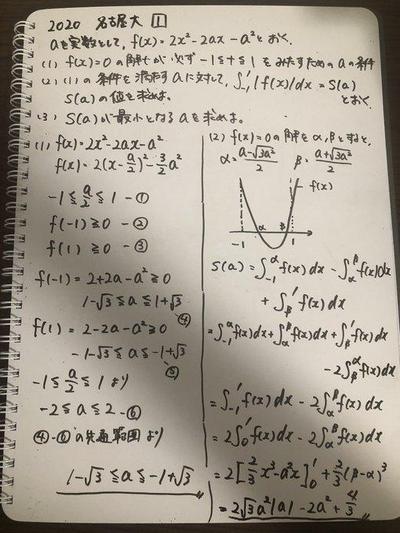 2020 名古屋大 1
aを実数として、f(x)=2x²-2ax-a²とおく。
(1) f(x)=0の解tが必ず -1≦t≦1 をみたすための aの条件
(2) (1)の条件を満たすaに対して、∫₋₁¹|f(x)|dx=S(a)とおく
S(a)の値を求めよ。
(3) S(a)が最小となるaを求めよ。
(1) f(x)=2x²-2ax-a²
f(x)=2(x-a/2)²-3/2a²
-1≦a/2≦1 -①
f(-1)≧0 -②
f(1)≧0 -③
f(-1)=2+2a-a²≧0
1-√3≦a≦1+√3
④
f(1)=2-2a-a²≧0
-1-√3≦a≦-1+√3
⑤
-1≦a/2≦1 より
-2≦a≦2 -⑥
④-⑥の共通範囲より
1-√3≦a≦-1+√3
(2) f(x)=0の解をα,βとすると、
α=(a-√3a²)/2 β=(a+√3a²)/2
f(x)
-1 α β 1
S(a)=∫₋₁^α f(x)dx-∫_α^β f(x)dx
+∫_β^1 f(x)dx
=∫₋₁^α f(x)dx+∫_α^β f(x)dx+∫_β^1 f(x)dx
-2∫_α^β f(x)dx
=∫₋₁¹f(x)dx-2∫_α^β f(x)dx
=2∫₀¹f(x)dx-2∫_α^β f(x)dx
=2[2/3x³-a²x]₀¹+2/3(β-α)³
=2√3a²|a|-2a²+4/3